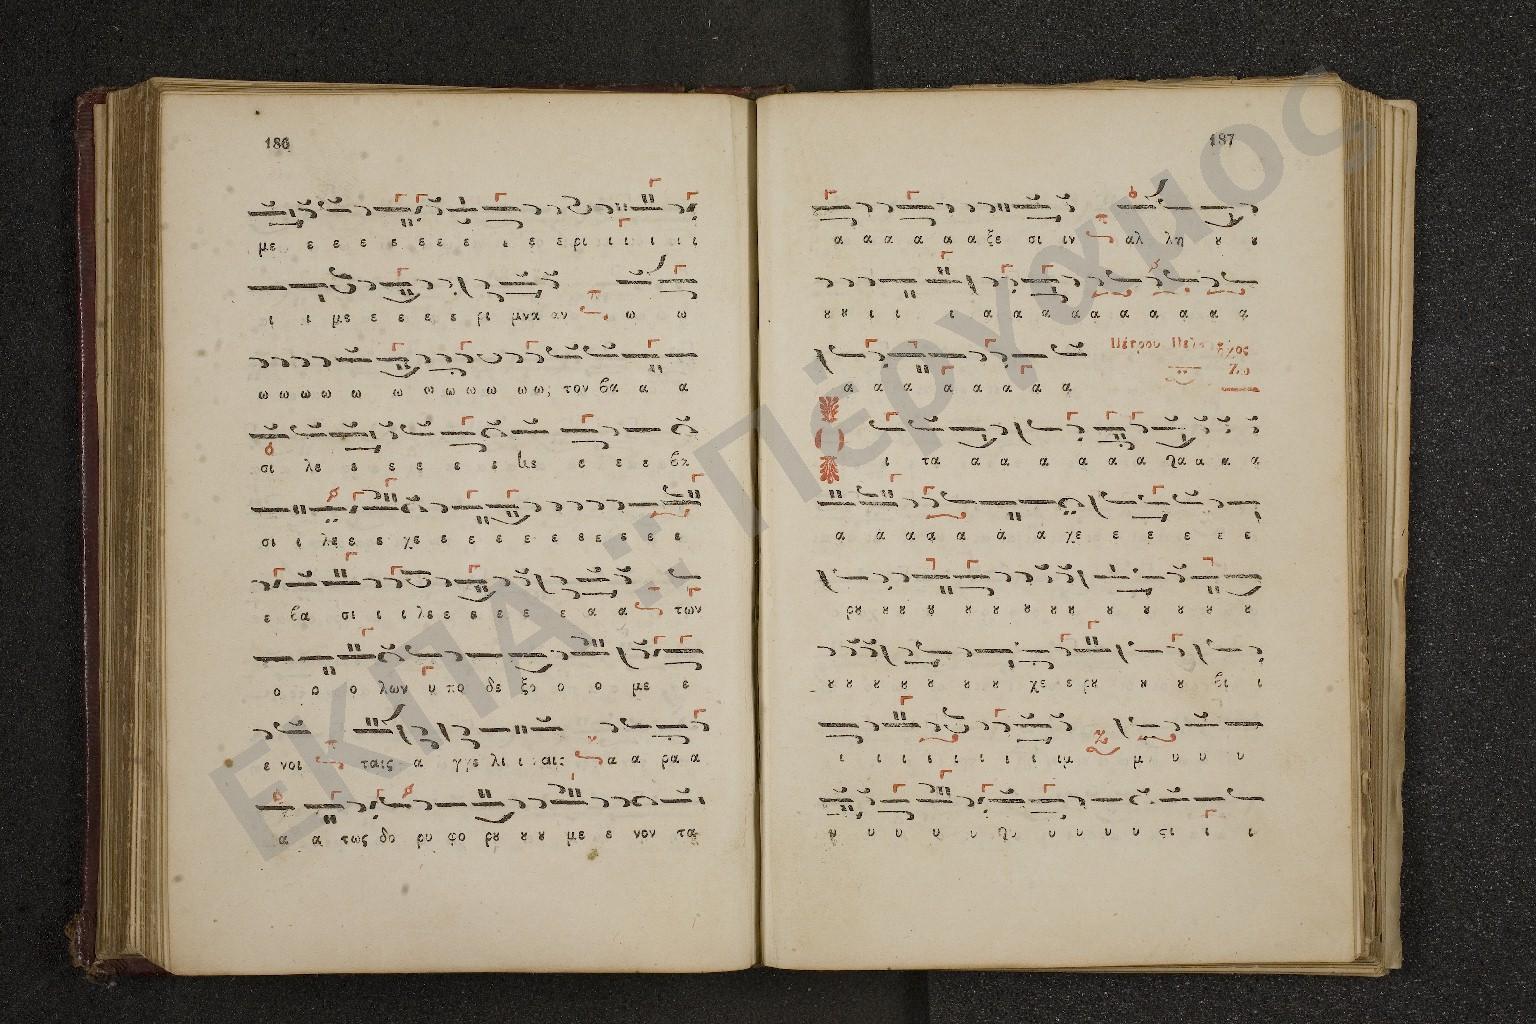 186
με ε ε ε ε ε ε ε ι ε ε ρι ι ι ι ι ι
ι ι με ε ε ε ε ρι μνα αν ω ω
ω ω ω ω ω ω ω ω ω ω ω ω; τον βα α α
σι λε ε ε ε ε ε ε ε ε ε βα
σι ι λε ε ε χε ε ε ε ε ε ε ε ε ε ε ε
ε βα σι ι ι λε ε ε ε ε ε ε α α των
ο ο ο λων υ πο δε ξο ο ο με ε
ε νοι ταις α γγε λι ι ταις α α ρα α
α α τως δο ρυ φο ρȣ ȣ ȣ με ε νον τα
187
α α α α α α α ξε σι ιν αλ λη ȣ ȣ
ȣ ȣ ι ι ι α α α α α α α α α α
α α α α α α α α Πέτρου Πελο ἦχος
Ζω
Ο ι τα α α α α α α α α α α
α α α α α α α χε ε ε ε ε ε
ρȣ ȣ ȣ ȣ ȣ ȣ ȣ ȣ ȣ ȣ ȣ ȣ ȣ ȣ
ȣ ȣ ȣ ȣ ȣ ȣ ȣ χε ε ρȣ ȣ ȣ βι ι
ι ι ι ι ι ι ι ι ιμ μ υ υ υ
υ υ υ υ υ υ υ υ υ ςι ι ι
ΕΚΠΑ :: Πέργαμος